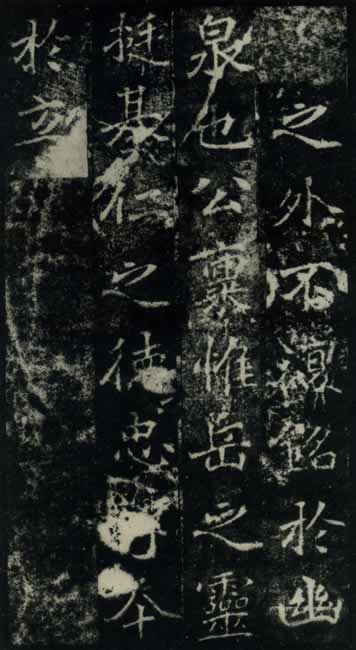 之外不銘於幽
泉也公稟惟岳之靈
挺基仁之德忠本
於